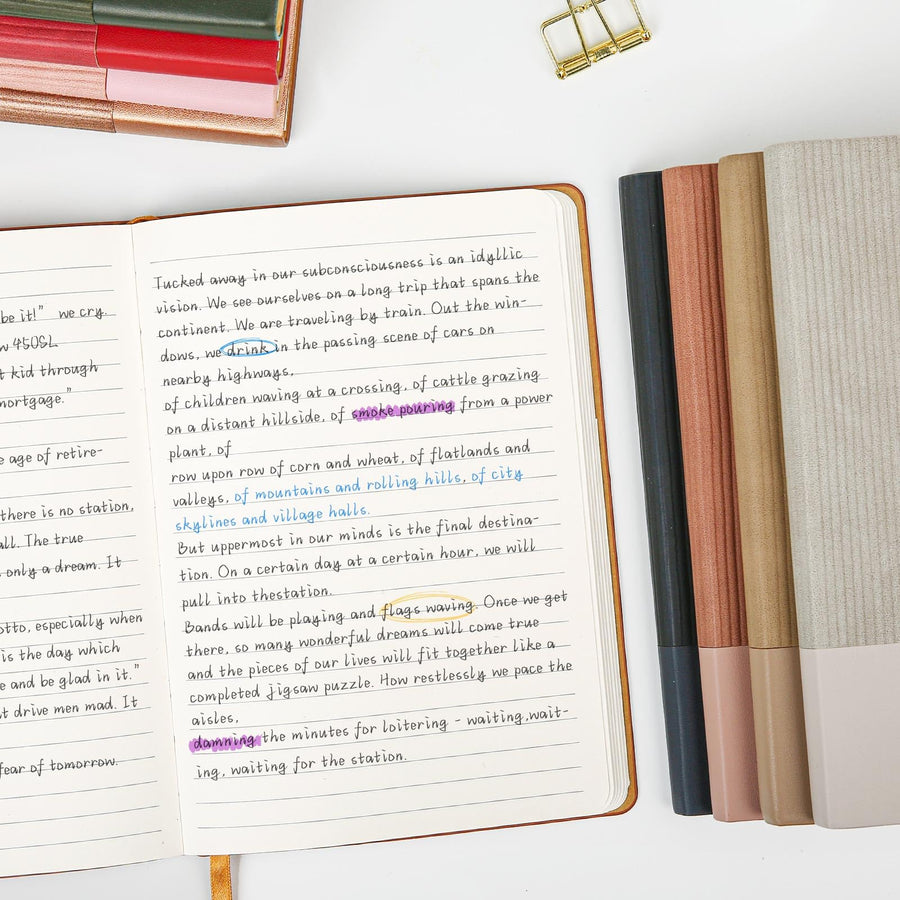 be it!" we cry.
450SL
kid through
mortgage."
age of retire-
there is no station,
all. The true
only a dream. It
otto, especially when
is the day which
e and be glad in it."
t drive men mad. It
fear of tomorrow.
Tucked away in our subconsciousness is an idyllic
vision. We see ourselves on a long trip that spans the
continent. We are traveling by train. Out the win-
dows, we drink in the passing scene of cars on
nearby highways,
of children waving at a crossing, of cattle grazing
on a distant hillside, of smoke pouring from a power
plant, of
row upon row of corn and wheat, of flatlands and
valleys, of mountains and rolling hills, of city
skylines and village halls.
But uppermost in our minds is the final destina-
tion. On a certain day at a certain hour, we will
pull into thestation.
Bands will be playing and flags waving. Once we get
there, so many wonderful dreams will come true
and the pieces of our lives will fit together like a
completed jigsaw puzzle. How restlessly we pace the
aisles,
damning the minutes for loitering - waiting,wait-
ing, waiting for the station.